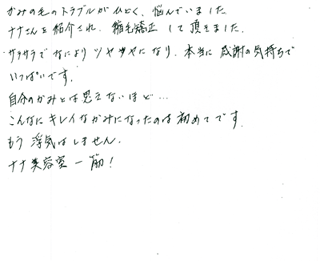 かみの毛のトラブルがひどく、悩んでいました
ナナさんを紹介され、縮毛矯正して頂きました。
サラサラでなによりツヤツヤになり、本当に感謝の気持ちで
いっぱいです。
自分のかみとは思えないほど…
こんなにキレイなかみになったのは初めてです。
もう浮気はしません。
ナナ美容室一筋！